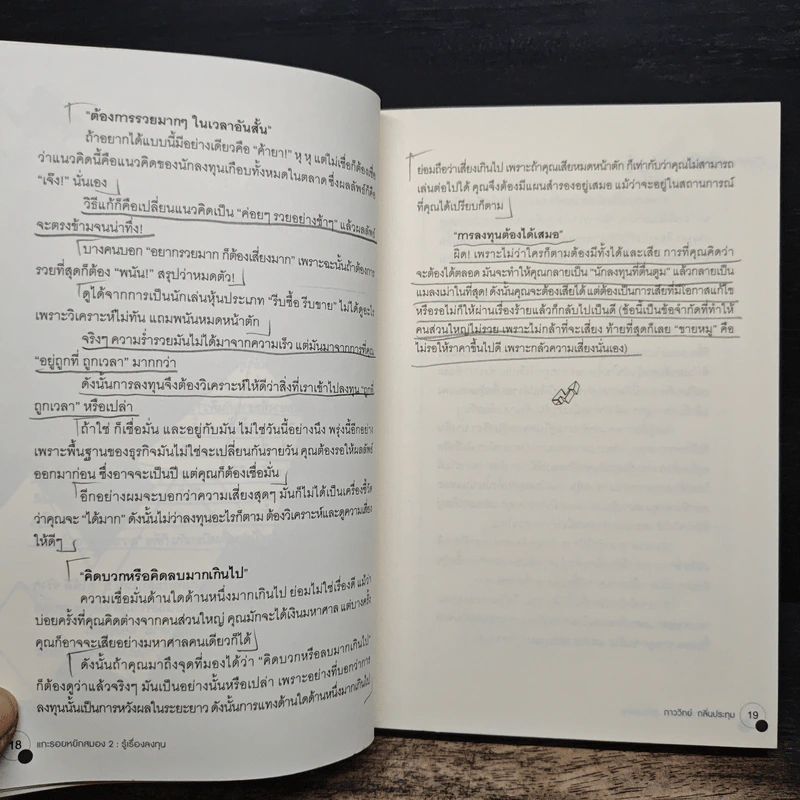 "ต้องการรวยมากๆ ในเวลาอันสั้น"
ถ้าอยากได้แบบนี้มีอย่างเดียวคือ "ค้ายา!" หุ หุ แต่ไม่เชื่อก็ต้องเชื่อ
ว่าแนวคิดนี้คือแนวคิดของนักลงทุนเกือบทั้งหมดในตลาด ซึ่งผลลัพธ์ก็คือ
"เจ๊ง!" นั่นเอง
วิธีแก้ก็คือเปลี่ยนแนวคิดเป็น "ค่อยๆ รวยอย่างช้าๆ" แล้วผลลัพธ์
จะตรงข้ามจนน่าทึ่ง!
บางคนบอก "อยากรวยมาก ก็ต้องเสี่ยงมาก" เพราะฉะนั้นถ้าต้องการ
รวยที่สุดก็ต้อง "พนัน!" สรุปว่าหมดตัว!
ดูได้จากการเป็นนักเล่นหุ้นประเภท "รีบซื้อ รีบขาย" ไม่ได้ดูอะไร
เพราะวิเคราะห์ไม่ทัน แถมพนันหมดหน้าตัก
จริงๆ ความร่ำรวยมันไม่ได้มาจากความเร็ว แต่มันมาจากการที่คุณ
"อยู่ถูกที่ ถูกเวลา" มากกว่า
ดังนั้นการลงทุนจึงต้องวิเคราะห์ให้ดีว่าสิ่งที่เราเข้าไปลงทุน "ถูกที่
ถูกเวลา" หรือเปล่า
ถ้าใช่ ก็เชื่อมั่น และอยู่กับมัน ไม่ใช่วันนี้อย่างนึง พรุ่งนี้อีกอย่าง
เพราะพื้นฐานของธุรกิจมันไม่ใช่จะเปลี่ยนกันรายวัน คุณต้องรอให้ผลลัพธ์
ออกมาก่อน ซึ่งอาจจะเป็นปี แต่คุณก็ต้องเชื่อมั่น
อีกอย่างผมจะบอกว่าความเสี่ยงสุดๆ มันก็ไม่ได้เป็นเครื่องชี้วัด
ว่าคุณจะ "ได้มาก" ดังนั้นไม่ว่าลงทุนอะไรก็ตาม ต้องวิเคราะห์และดูความเสี่ยง
ให้ดีๆ
"คิดบวกหรือคิดลบมากเกินไป"
ความเชื่อมั่นด้านใดด้านหนึ่งมากเกินไป ย่อมไม่ใช่เรื่องดี แม้ว่า
บ่อยครั้งที่คุณคิดต่างจากคนส่วนใหญ่ คุณมักจะได้เงินมหาศาล แต่บางครั้ง
คุณก็อาจจะเสียอย่างมหาศาลคนเดียวก็ได้
ดังนั้นถ้าคุณมาถึงจุดที่มองได้ว่า "คิดบวกหรือคิดลบมากเกินไป"
ก็ต้องดูว่าแล้วจริงๆ มันเป็นอย่างนั้นหรือเปล่า เพราะอย่างที่บอกว่าการ
ลงทุนนั้นเป็นการหวังผลในระยะยาว ดังนั้นการแทงด้านใดด้านหนึ่งมากเกินไป
18 แกะรอยหยักสมอง 2 : รู้เรื่องลงทุน
ย่อมถือว่าเสี่ยงเกินไป เพราะถ้าคุณเสียหมดหน้าตัก ก็เท่ากับว่าคุณไม่สามารถ
เล่นต่อไปได้ คุณจึงต้องมีแผนสำรองอยู่เสมอ แม้ว่าจะอยู่ในสถานการณ์
ที่คุณได้เปรียบก็ตาม
"การลงทุนต้องได้เสมอ"
ผิด! เพราะไม่ว่าใครก็ตามต้องมีทั้งได้และเสีย การที่คุณคิดว่า
จะต้องได้ตลอด มันจะทำให้คุณกลายเป็น "นักลงทุนที่ตื่นตูม" แล้วกลายเป็น
แมลงเม่าในที่สุด! ดังนั้นคุณจะต้องเสียได้ แต่ต้องเป็นการเสียที่มีโอกาสแก้ไข
หรือรอไม่ก็ให้ผ่านเรื่องร้ายแล้วก็กลับไปเป็นดี (ข้อนี้เป็นข้อจำกัดที่ทำให้
คนส่วนใหญ่ไม่รวย เพราะไม่กล้าที่จะเสี่ยง ท้ายที่สุดก็เลย "ขายหมู" คือ
ไม่รอให้ราคาขึ้นไปดี เพราะกลัวความเสี่ยงนั่นเอง)
ภาววิทย์ กลิ่นประทุม 19